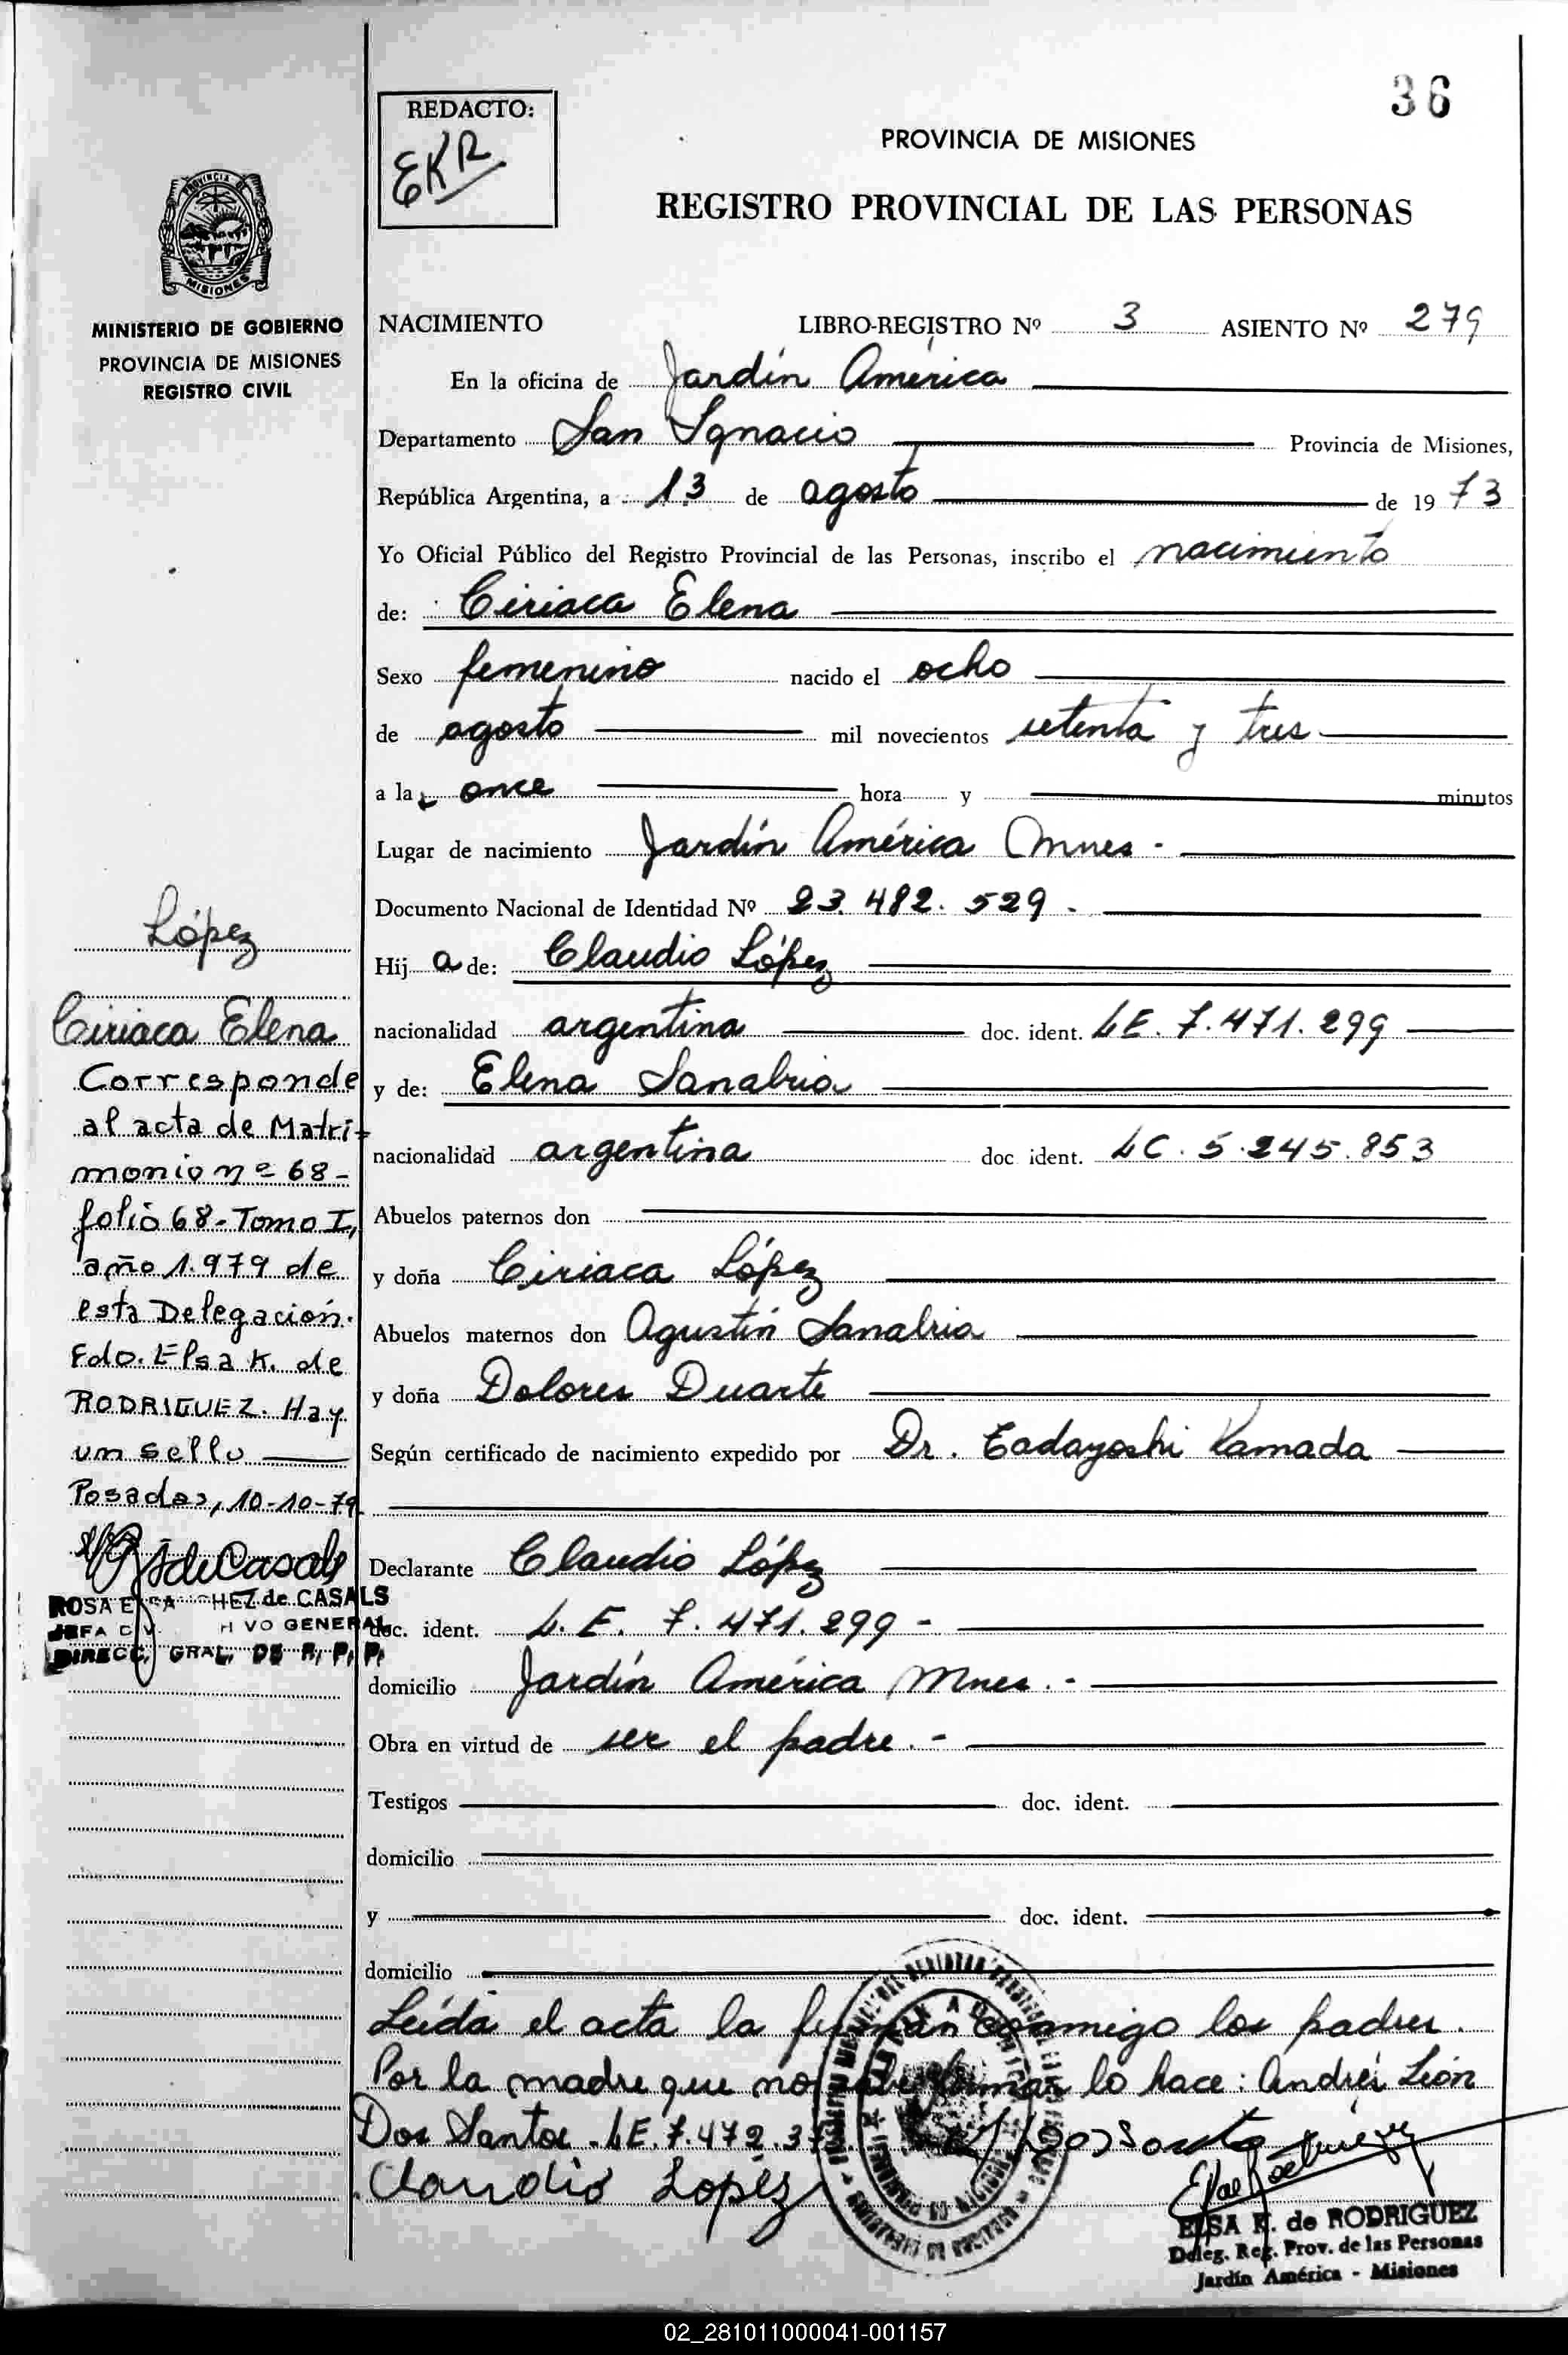 36
REDACTO:
EKR
PROVINCIA DE MISIONES
REGISTRO PROVINCIAL DE LAS PERSONAS
PROVINCIA DE
MISIONES
MINISTERIO DE GOBIERNO
PROVINCIA DE MISIONES
REGISTRO CIVIL
NACIMIENTO LIBRO-REGISTRO Nº 3 ASIENTO Nº 279
En la oficina de Jardín América
Departamento San Ignacio Provincia de Misiones,
República Argentina, a 13 de agosto de 1973
Yo Oficial Público del Registro Provincial de las Personas, inscribo el nacimiento
de: Ciriaca Elena
Sexo femenino nacido el ocho
de agosto mil novecientos setenta y tres
a las once hora y minutos
Lugar de nacimiento Jardín América Mnes -
Documento Nacional de Identidad Nº 23.482.529 -
Hija de: Claudio López
nacionalidad argentina doc. ident. LE. 7.471.299
y de: Elena Sanabria
nacionalidad argentina doc ident. LC. 5.245.853
Abuelos paternos don
y doña Ciriaca López
Abuelos maternos don Agustín Sanabria
y doña Dolores Duarte
Según certificado de nacimiento expedido por Dr. Tadayoshi Kamada
Declarante Claudio López
doc. ident. L.E. 7.471.299 -
domicilio Jardín América Mnes. -
Obra en virtud de ser el padre. -
Testigos doc. ident.
domicilio
y doc. ident.
domicilio
Leída el acta la firman conmigo los padres.
Por la madre que no firmar lo hace: Andrés León
Dos Santos. LE. 7.472.3
Claudio Lopez
ELSA K. de RODRIGUEZ
Deleg. Reg. Prov. de las Personas
Jardín América - Misiones
López
Ciriaca Elena
Corresponde
al acta de Matri-
monio nº 68-
folio 68-Tomo I,
año 1.979 de
esta Delegación.
Fdo. Elsa K. de
RODRIGUEZ. Hay
un sello
Posadas, 10-10-79
de Casals
ROSA E HEZ de CASALS
JEFA VO GENERAL
DIRECC. GRAL. DE R. P. P.
02_281011000041-001157